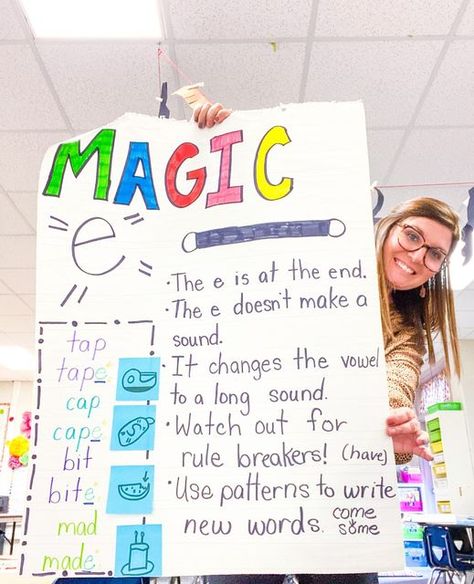 MAGIC
e
· The e is at the end.
· The e doesn't make a
sound.
· It changes the vowel
to a long sound.
· Watch out for
rule breakers! (have)
· Use patterns to write
new words. come
some
tap
tape
cap
cape
bit
bite
mad
made